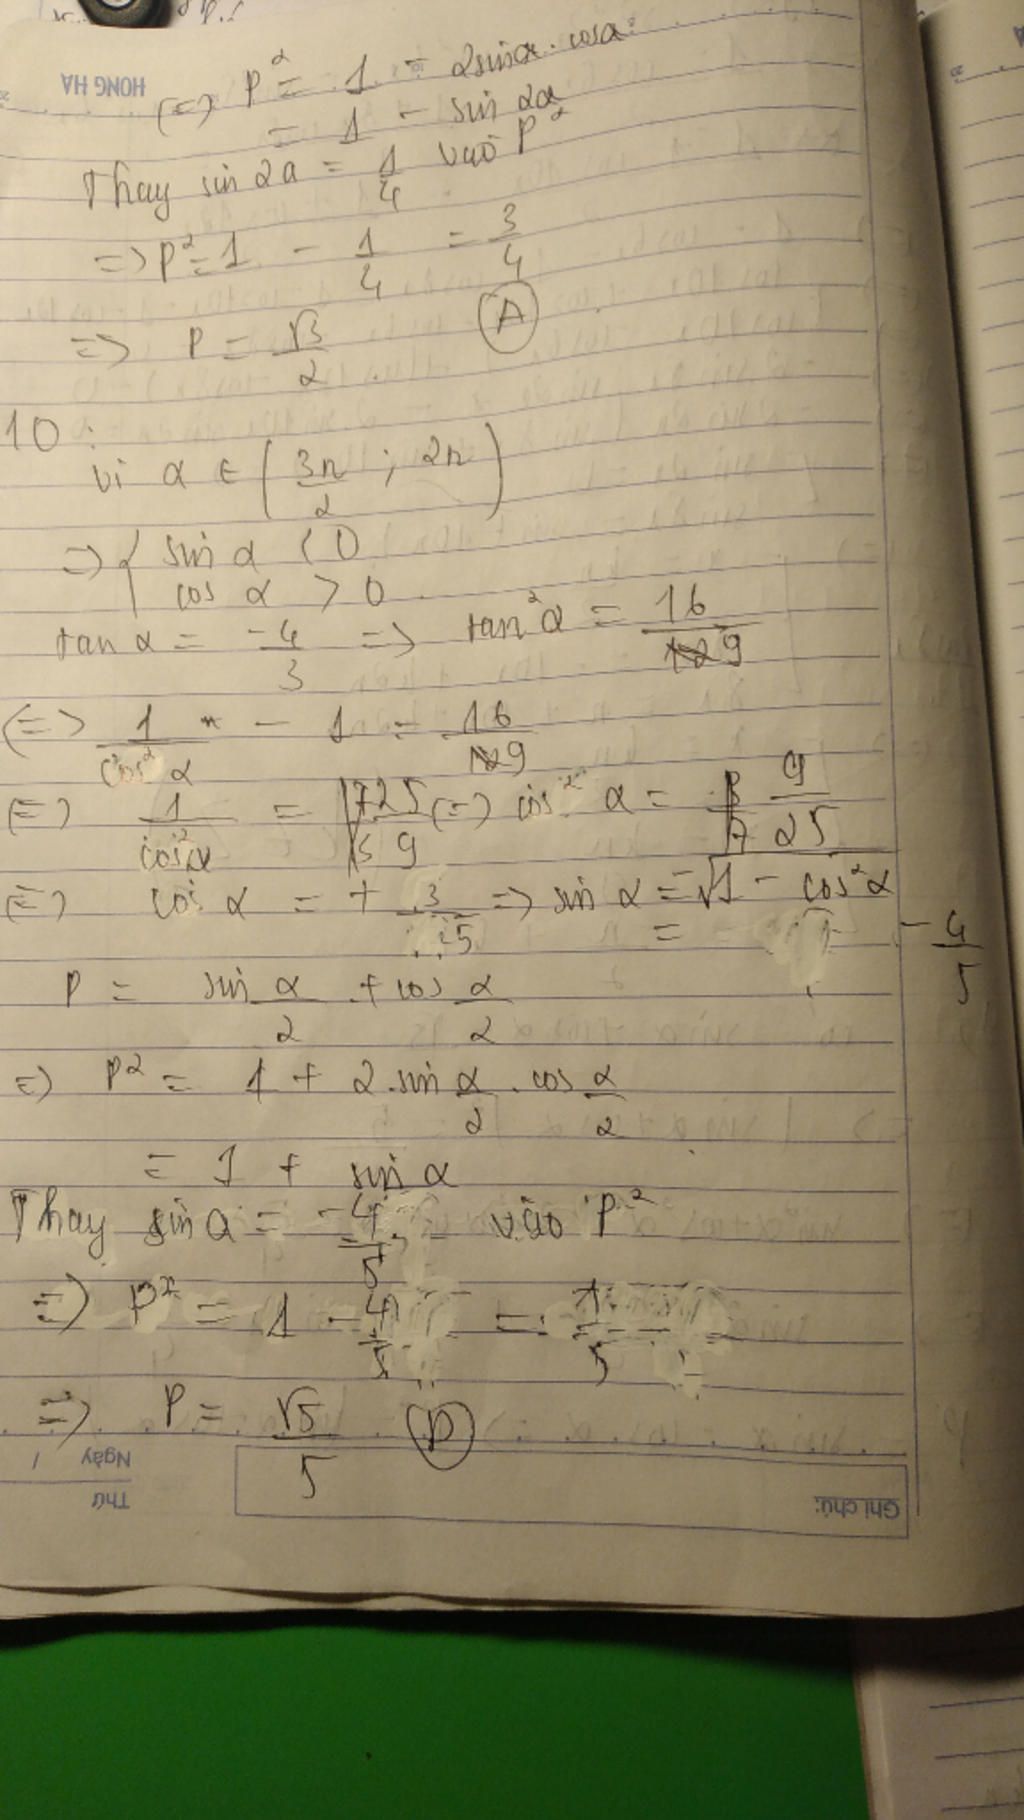 HONG HA
(=) P² = 1 - 2sinα.cosα
= 1 - sin 2α
Thay sin 2a = 1/4 vào P²
=> P² = 1 - 1/4 = 3/4
=> P = √3/2 (A)
10:
vì α ∈ (3π/2 ; 2π)
=> { sin α < 0
cos α > 0
tan α = -4/3 => tan²α = 16/9
(=) 1/cos²α - 1 = 16/9
(=) 1/cos²α = 25/9 (=) cos²α = 9/25
(=) cos α = + 3/5 => sin α = -√1 - cos²α
= -4/5
P = sin α/2 + cos α/2
=) P² = 1 + 2.sin α/2 . cos α/2
= 1 + sin α
Thay sin α = -4/5 vào P²
=) P² = 1 - 4/5 = 1/5
=> P = √5/5 (D)
Ngày /
Thứ
Ghi chú: